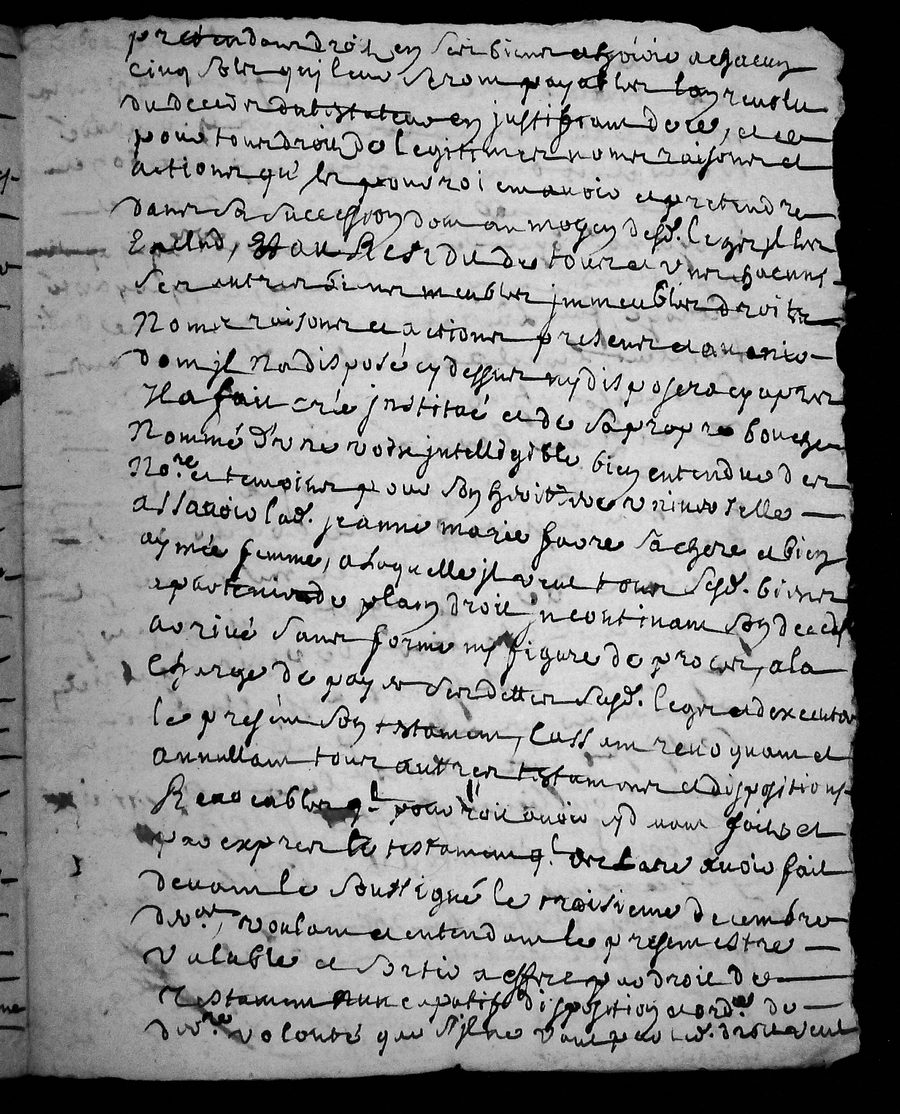 pretendans droit en ses biens assavoir a chacun
cinq solz quj leurs seront payables lan revolu
du deces du testateur en justifiant de ce, et ce
pour tous droits de legitimes noms raisons et
actions qu'ils pourroient avoir et pretendre
dans sa succession dont au moyen desd. legez jl les
Exclud, Et au Residu de tous et uns chacuns
Ses autres biens meubles jmmeubles droitz
Noms raisons et actions presens et avenir
dont jl Na disposé cy dessus ny disposera cy apres
Il a fait créé jnstitué et de Sa propre bouche
Nommé d'une voix jntelligible bien entendue des
No.re et temoins pour Son heritiere universelle
assavoir lad. jeanne marie favre Sa chere et bien
aymée femme, a Laquelle jl veut tous Sesd. biens
apartenir de plain droit jncontinant Son deceds
arrivé Sans forme ny figure de proces, a la
Charge de payer Ses dettes Sesd. legez et dexecuter
le present Son testament, Cassant revoquant et
annullant tous autres testamens et dispositions
Revocables q.l pourroit avoir cy d vant faits et
par expres le testament q.l declare avoir fait
devant le Soussigné le troisieme decembre
d.er, voulant et entendant le present estre
Valable et Sortir a effet par droit de
testament nuncupatif disposition et ord.e de
der.re volonté que Sjl ne vaut par led. droit veut